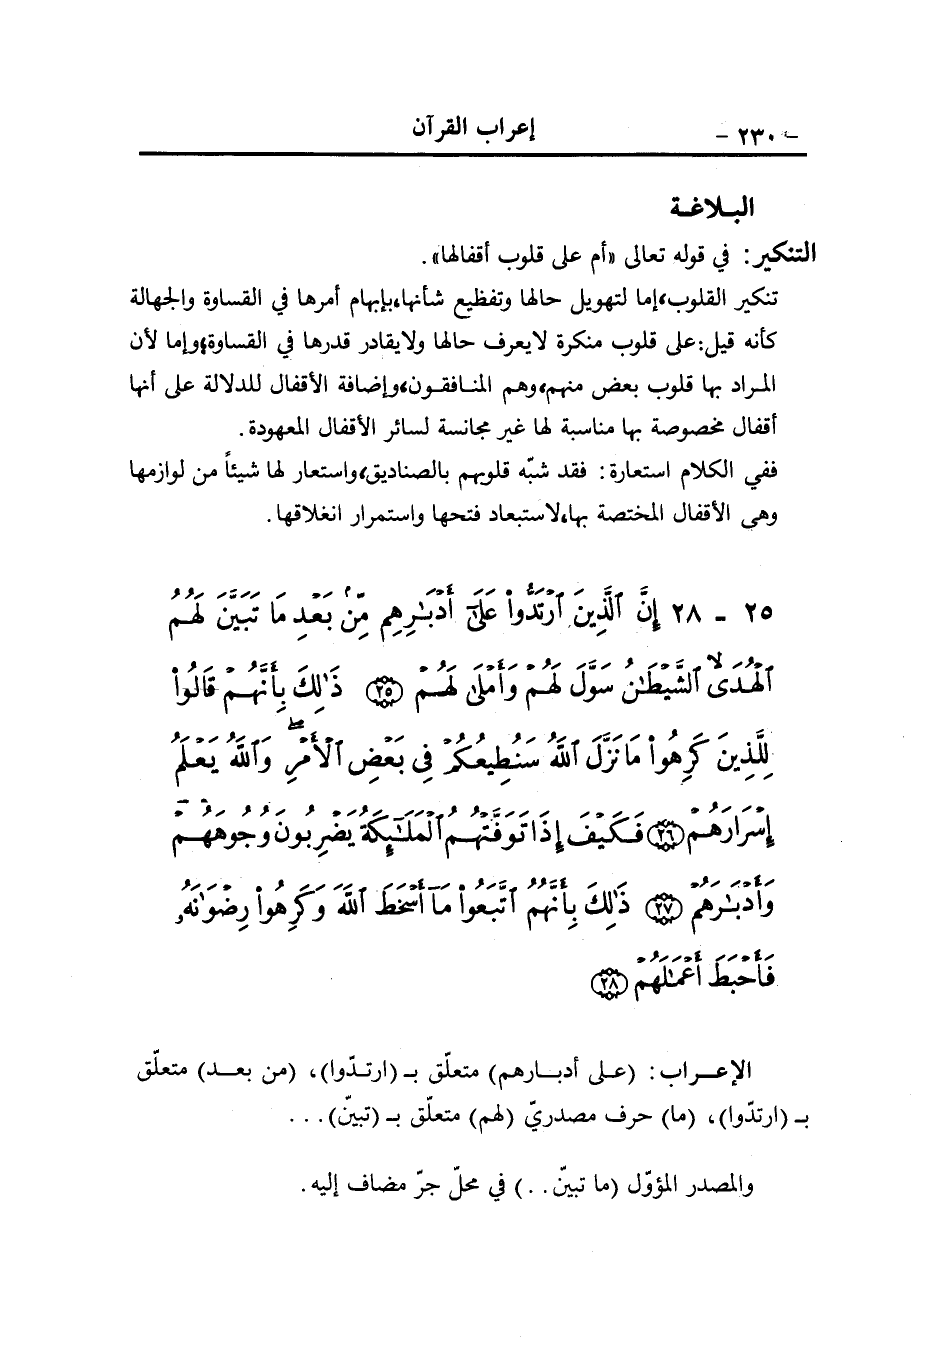 إعراب القرآن
- ٢٣٠ -
البلاغة
التنكير: في قوله تعالى «أم على قلوب أقفالها».
تنكير القلوب، إما لتهويل حالها وتفظيع شأنها، بإبهام أمرها في القساوة والجهالة
كأنه قيل: على قلوب منكرة لا يعرف حالها ولا يقادر قدرها في القساوة، وإما لأن
المراد بها قلوب بعض منهم، وهم المنافقون، وإضافة الأقفال للدلالة على أنها
أقفال مخصوصة بها مناسبة لها غير مجانسة لسائر الأقفال المعهودة.
ففي الكلام استعارة: فقد شبّه قلوبهم بالصناديق، واستعار لها شيئاً من لوازمها
وهي الأقفال المختصة بها، لاستبعاد فتحها واستمرار انغلاقها.
٢٥ - ٢٨ إِنَّ ٱلَّذِينَ ٱرْتَدُّوا۟ عَلَىٰٓ أَدْبَـٰرِهِم مِّنۢ بَعْدِ مَا تَبَيَّنَ لَهُمُ
ٱلْهُدَى ۙ ٱلشَّيْطَـٰنُ سَوَّلَ لَهُمْ وَأَمْلَىٰ لَهُمْ ﴿٢٥﴾ ذَٰلِكَ بِأَنَّهُمْ قَالُوا۟
لِلَّذِينَ كَرِهُوا۟ مَا نَزَّلَ ٱللَّهُ سَنُطِيعُكُمْ فِى بَعْضِ ٱلْأَمْرِ ۖ وَٱللَّهُ يَعْلَمُ
إِسْرَارَهُمْ ﴿٢٦﴾ فَكَيْفَ إِذَا تَوَفَّتْهُمُ ٱلْمَلَـٰٓئِكَةُ يَضْرِبُونَ وُجُوهَهُمْ
وَأَدْبَـٰرَهُمْ ﴿٢٧﴾ ذَٰلِكَ بِأَنَّهُمُ ٱتَّبَعُوا۟ مَآ أَسْخَطَ ٱللَّهَ وَكَرِهُوا۟ رِضْوَٰنَهُۥ
فَأَحْبَطَ أَعْمَـٰلَهُمْ ﴿٢٨﴾
الإعراب: (على أدبارهم) متعلّق بـ (ارتدّوا)، (من بعد) متعلّق
بـ (ارتدّوا)، (ما) حرف مصدريّ (لهم) متعلّق بـ (تبيّن)...
والمصدر المؤوّل (ما تبيّن..) في محلّ جرّ مضاف إليه.